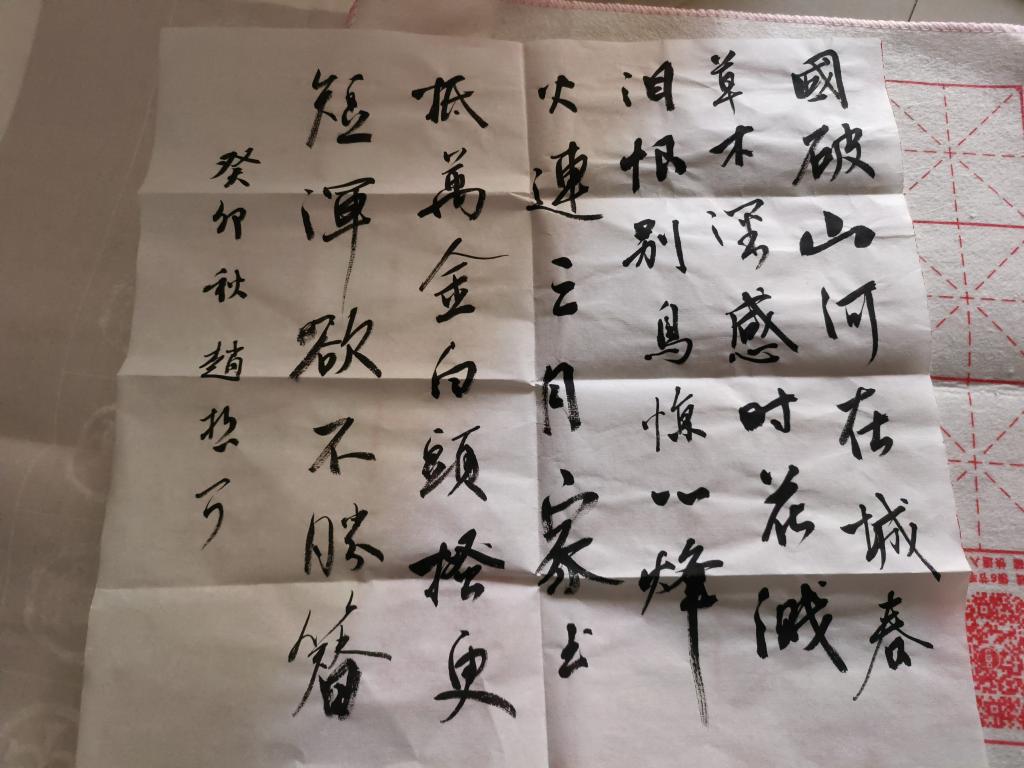 國破山河在城春
草木深感时花溅
泪恨别鳥惊心烽
火連三月家书
抵萬金白頭搔更
短渾欲不勝簪
癸卯秋趙